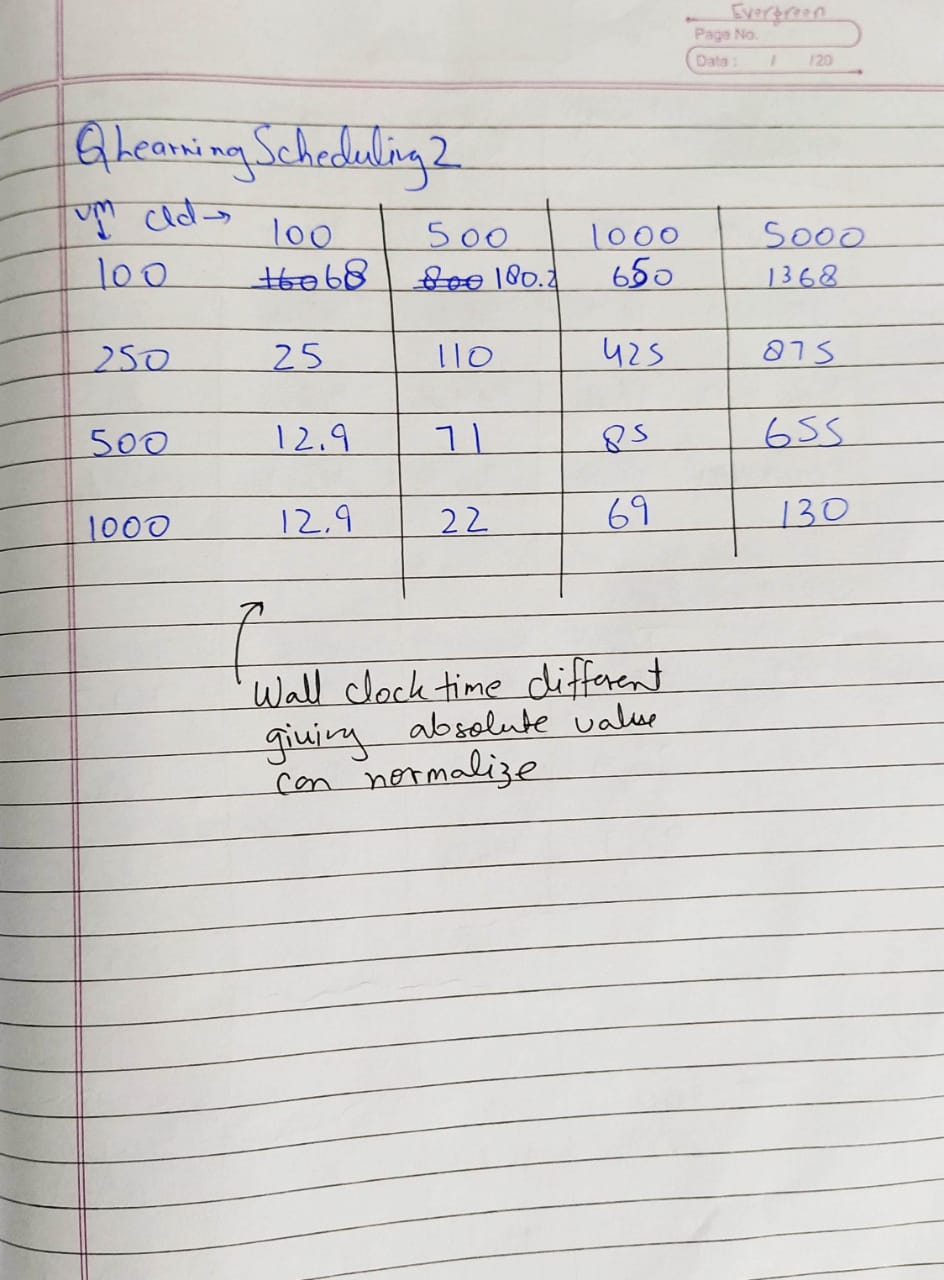 Evergreen
Page No.
Date : / /20
QLearning Scheduling 2
VM↓ Cld → 100 500 1000 5000
100 160 68 800 180.2 650 1368
250 25 110 425 875
500 12.9 71 85 655
1000 12.9 22 69 130
Wall clock time different
giving absolute value
can normalize